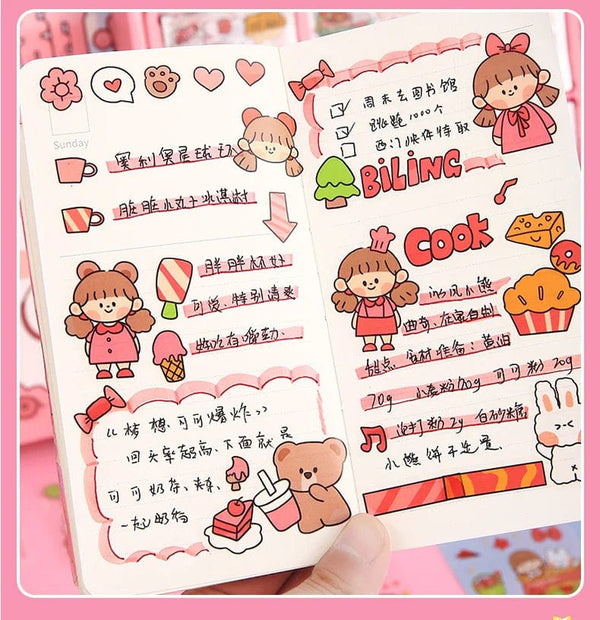 Sunday
奥利奥星球
脏脏小丸子冰淇淋
胖胖杯好
可爱、特别清爽
特吃有嚼劲、
“梦想可可爆炸”
回头率超高、下面就是
可可奶茶、
一起奶
周末去图书馆
跳绳1000个
西门快件待取
BiLiNG
COOK
小熊
曲奇、在家自制
甜点 食材准备：黄油
70g 小麦粉80g 可可粉20g
泡打粉2g 白砂糖
小熊饼干造意